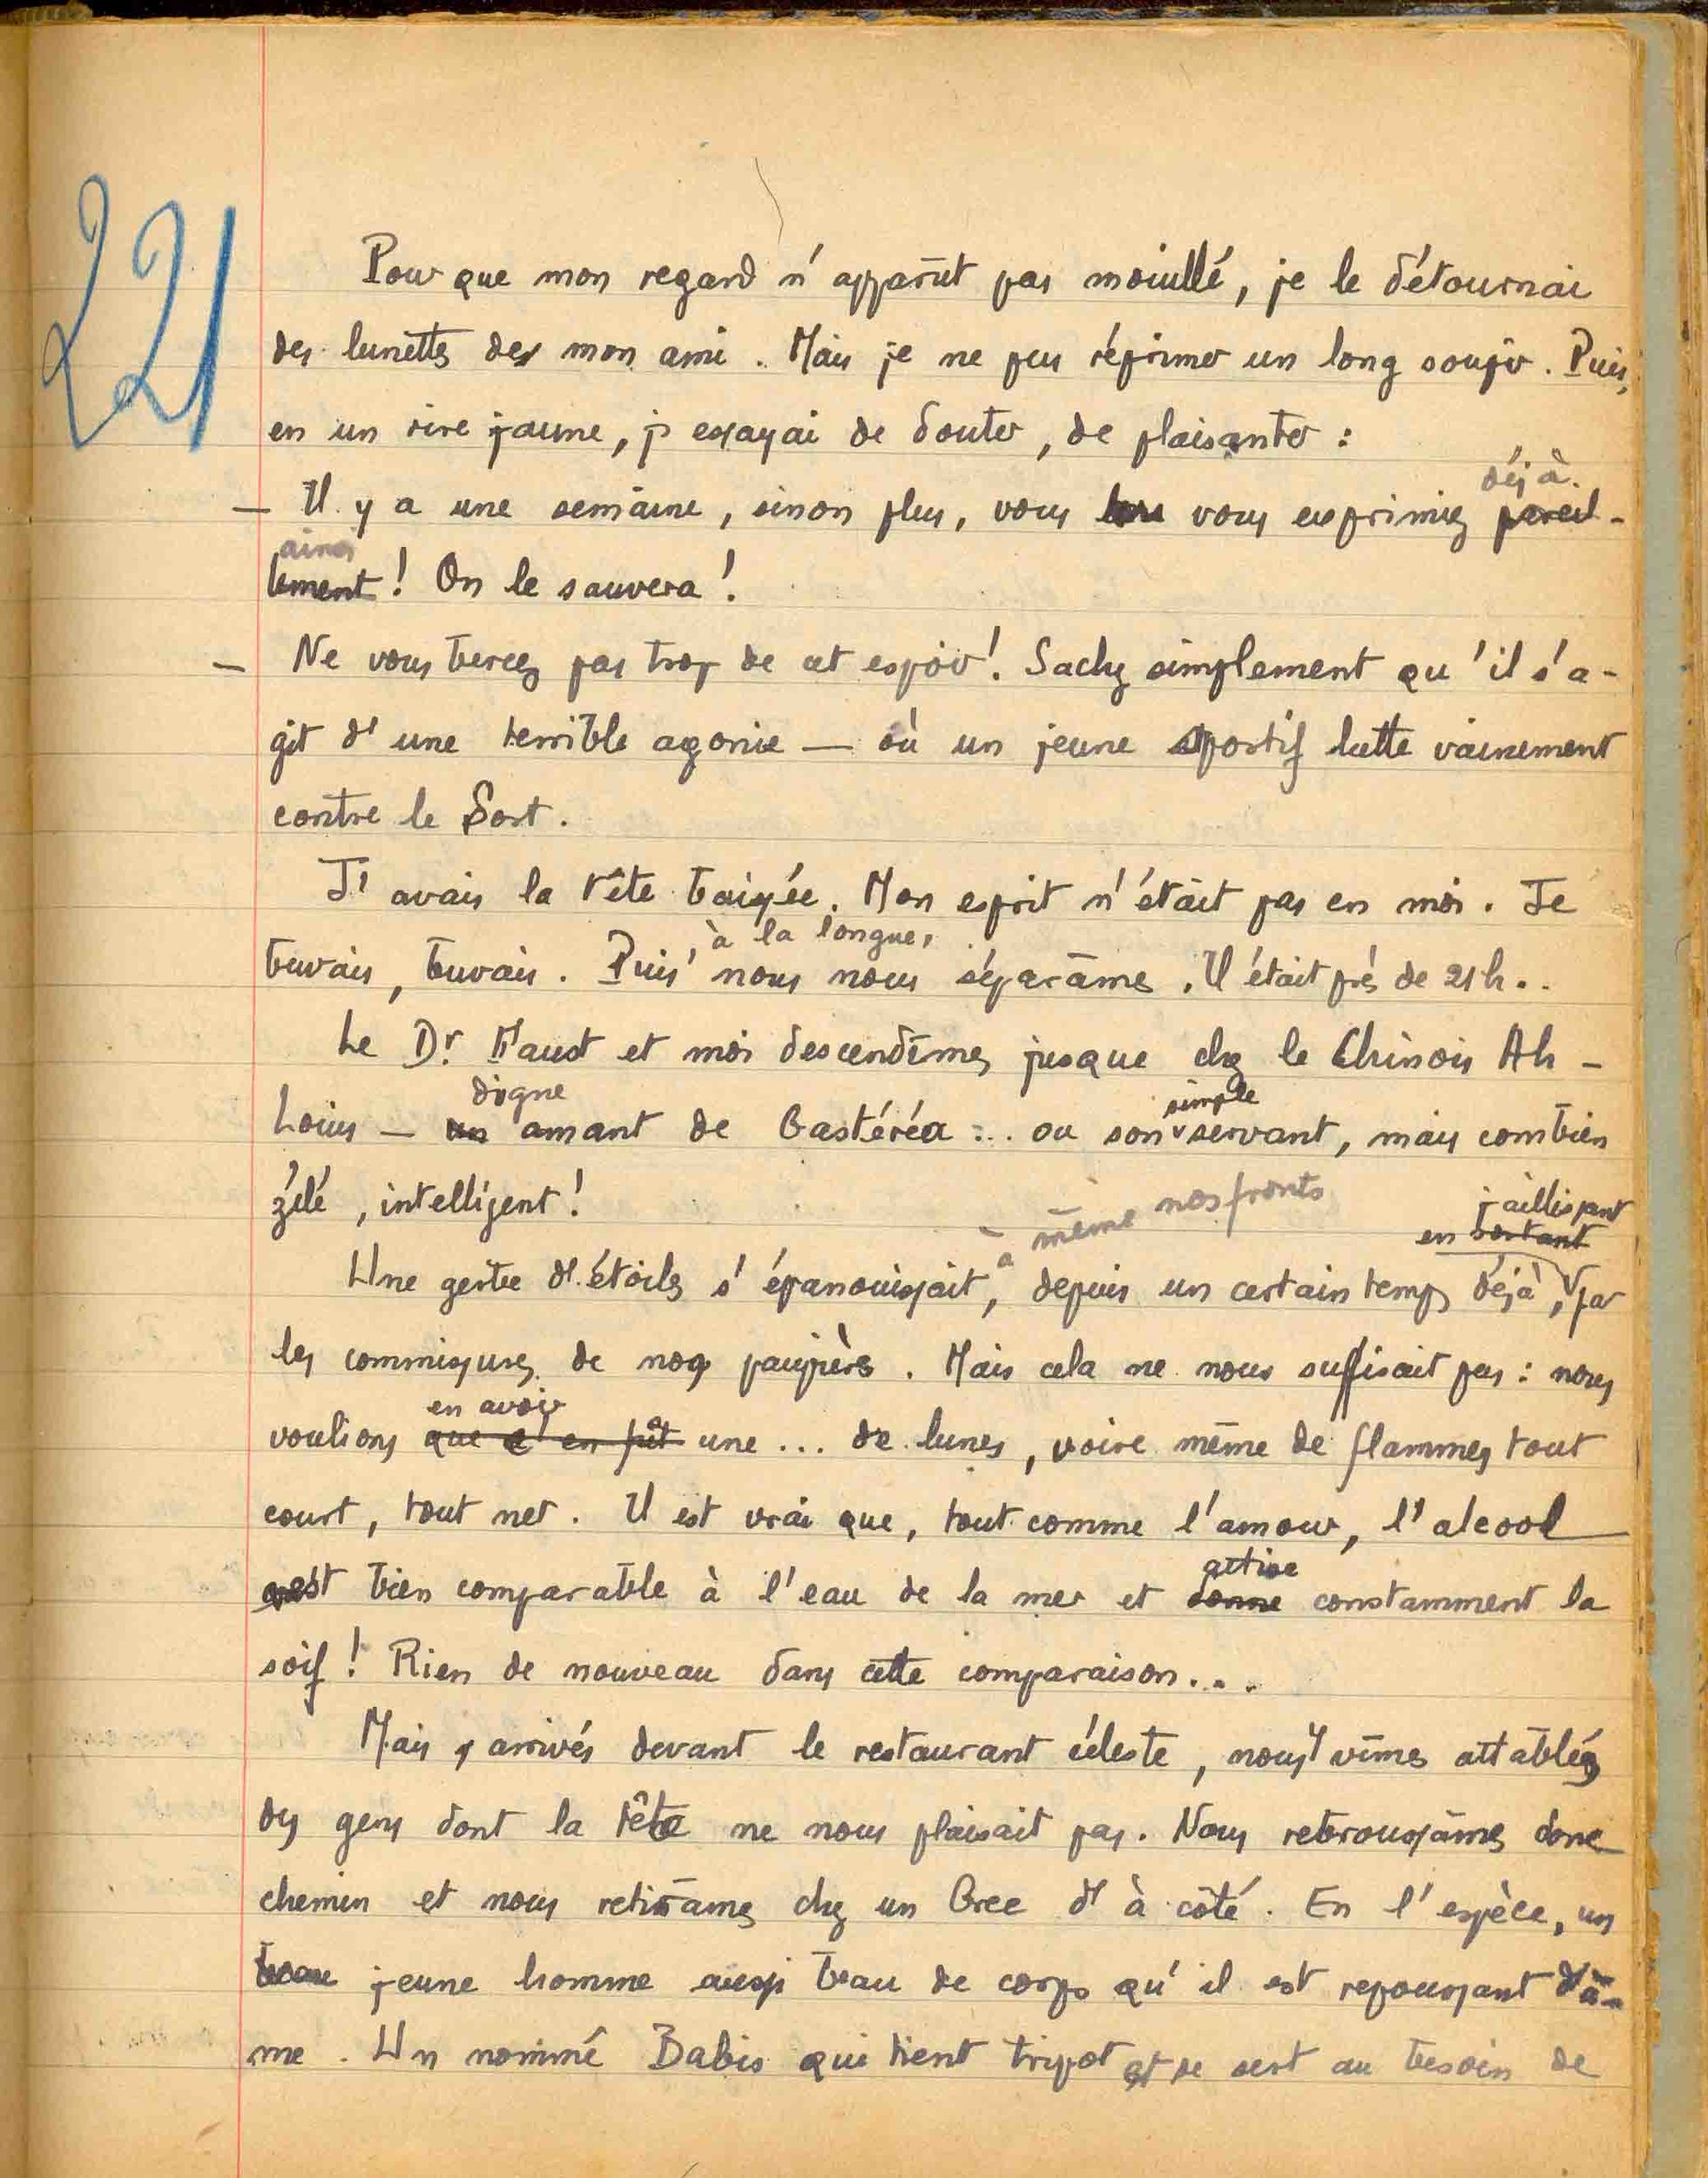 221
Pour que mon regard n'apparût pas mouillé, je le détournai
des lunettes de mon ami. Mais je ne pus réprimer un long soupir. Puis,
en un rire jaune, j'essayai de douter, de plaisanter :
déjà
— Il y a une semaine, sinon plus, vous vous exprimiez pareil-
ainsi
lement ! On le sauvera !
— Ne vous bercez pas trop de cet espoir ! Sachez simplement qu'il s'a-
git d'une terrible agonie — où un jeune sportif lutte vainement
contre le Sort.
J'avais la tête baissée. Mon esprit n'était pas en moi. Je
, à la longue,
buvais, buvais. Puis nous nous séparâmes. Il était près de 21h..
Le Dr Faust et moi descendîmes jusque chez le Chinois Ah-
digne
simple
Louis — un amant de Gastéréa... ou son servant, mais combien
zélé, intelligent !
à même nos fronts
jaillissant
en sortant
Une gerbe d'étoiles s'épanouissait, depuis un certain temps déjà, par
les commissures de nos paupières. Mais cela ne nous suffisait pas : nous
en avoir
voulions que c'en fût une... de lunes, voire même de flammes tout
court, tout net. Il est vrai que, tout comme l'amour, l'alcool
attise
est bien comparable à l'eau de la mer et donne constamment la
soif ! Rien de nouveau dans cette comparaison...
Mais, arrivés devant le restaurant céleste, nous y vîmes attablés
des gens dont la tête ne nous plaisait pas. Nous rebroussâmes donc
chemin et nous retirâmes chez un Grec d'à côté. En l'espèce, un
beau jeune homme aussi beau de corps qu'il est repoussant d'â-
me. Un nommé Babis qui tient tripot et se sert au besoin de